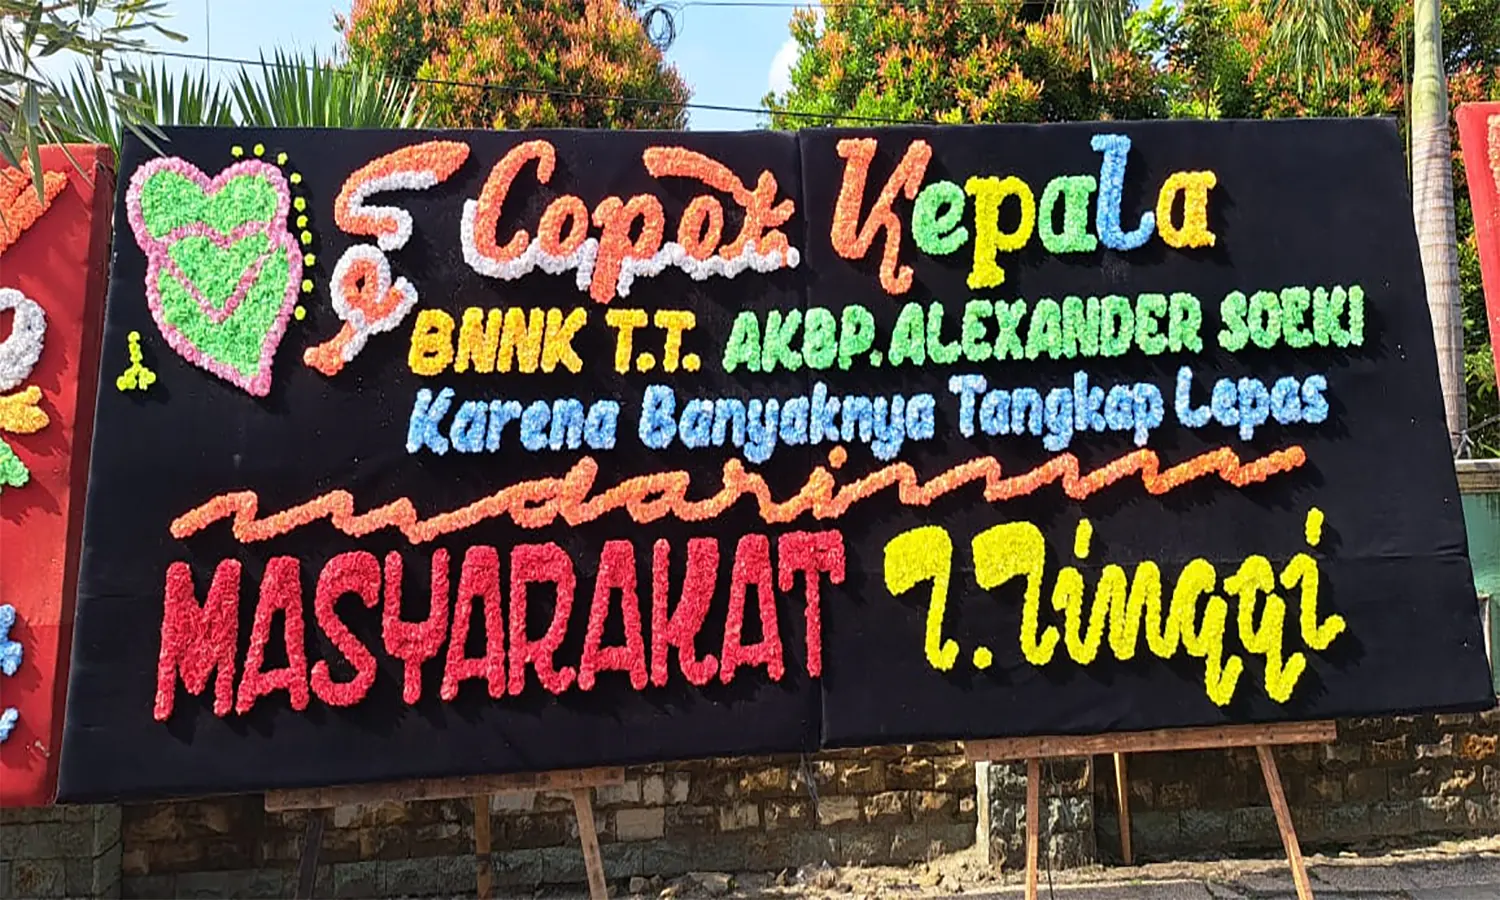 Copot Kepala
BNNK T.T. AKBP. ALEXANDER SOEKI
Karena Banyaknya Tangkap Lepas
dari
MASYARAKAT T.Tinggi